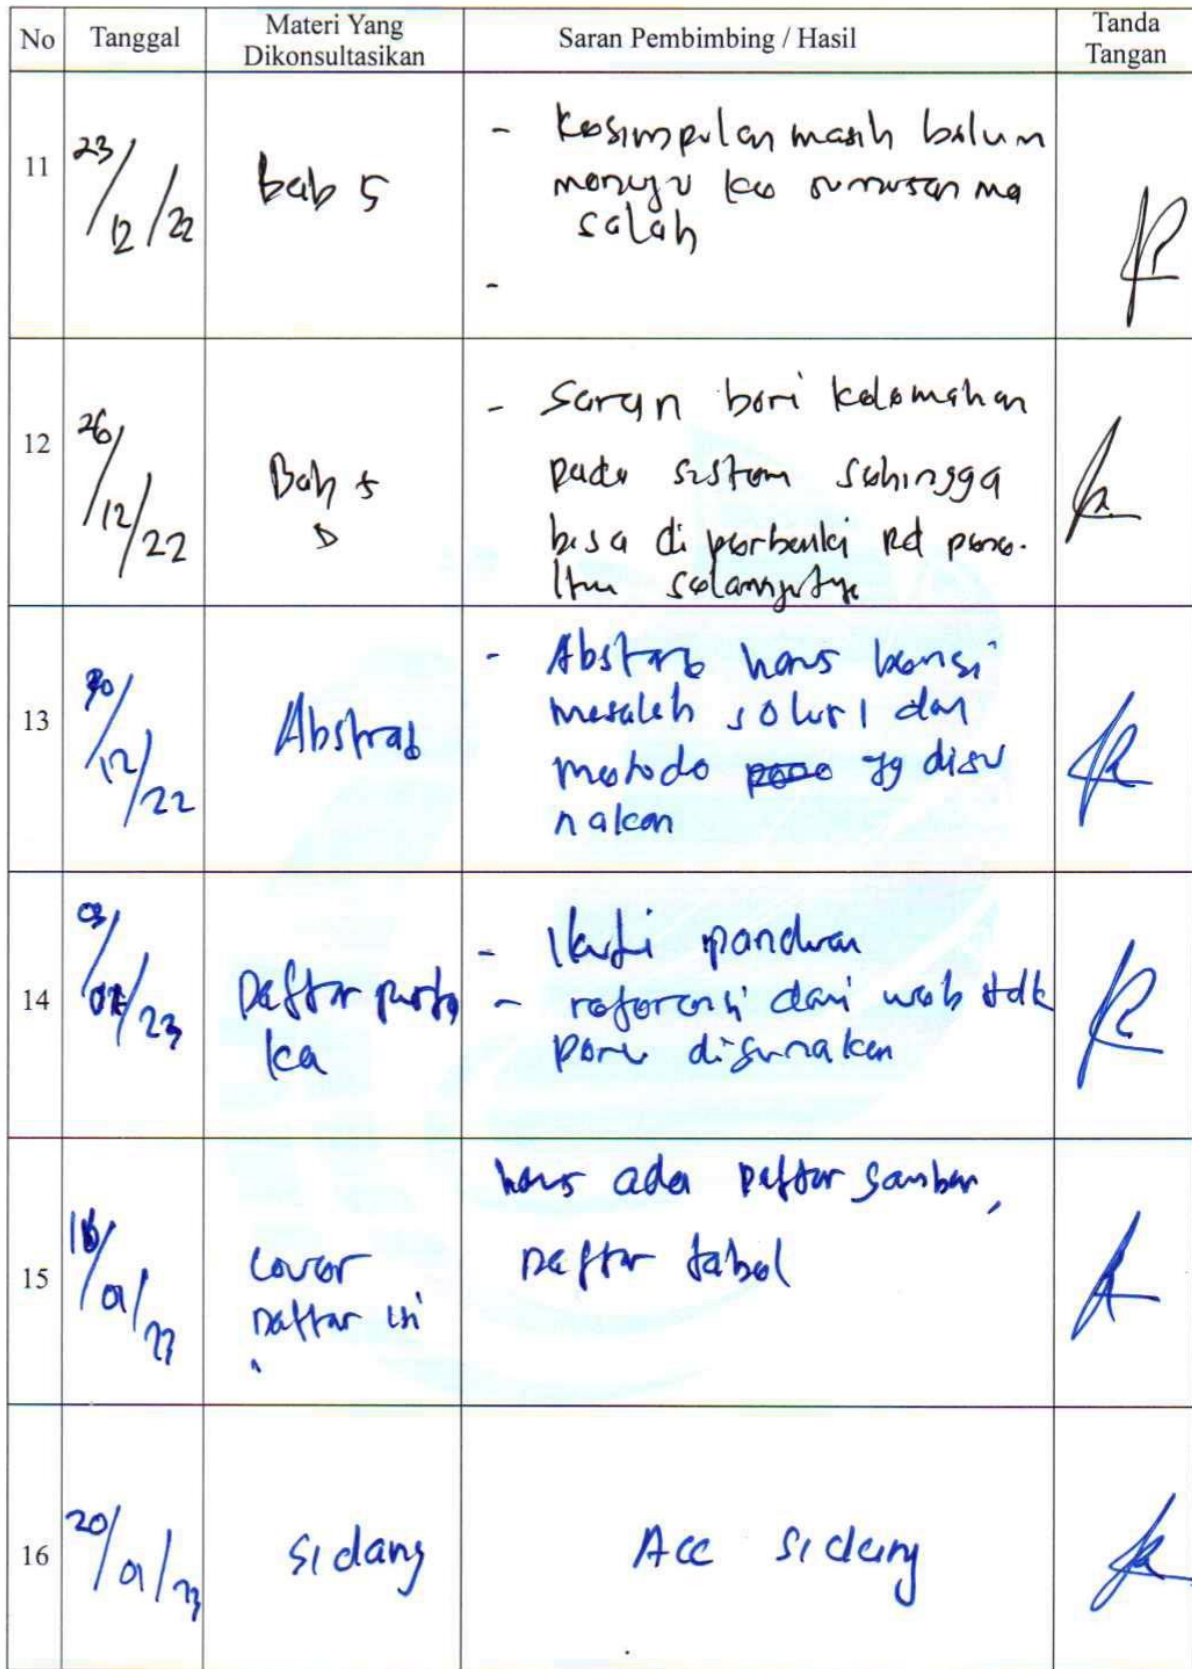 No Tanggal Materi Yang Dikonsultasikan Saran Pembimbing / Hasil Tanda Tangan
11 23/12/22 bab 5
- Kesimpulan masih belum
menuju ke rumusan ma
salah
-
12 26/12/22 Bab 5
- Saran beri kelemahan
pada sistem sehingga
bisa di perbaiki pd pene-
litian selanjutnya
13 30/12/22 Abstrak
- Abstrak harus berisi
masalah solusi dan
metode yg digu
nakan
14 03/01/23 Daftar pusta
ka
- Ikuti panduan
- referensi dari web tdk
perlu digunakan
15 16/01/23 cover
Daftar isi
harus ada Daftar gambar,
Daftar tabel
16 20/01/23 sidang Acc sidang